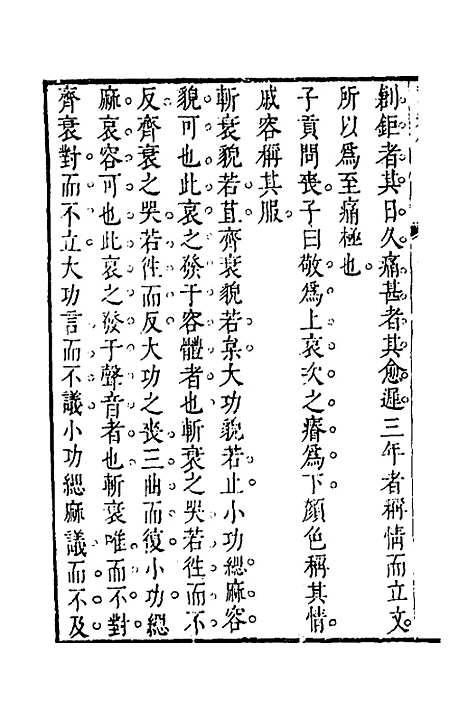 創鉅者其日久痛甚者其愈遲三年者稱情而立文
所以爲至痛極也
子貢問喪子曰敬爲上哀次之瘠爲下顏色稱其情
戚容稱其服
斬衰貌若苴齊衰貌若枲大功貌若止小功緦麻容
貌可也此哀之發于容體者也斬衰之哭若徃而不
反齊衰之哭若徃而反大功之喪三曲而偯小功緦
麻哀容可也此哀之發于聲音者也斬衰唯而不對
齊衰對而不立大功言而不議小功緦麻議而不及